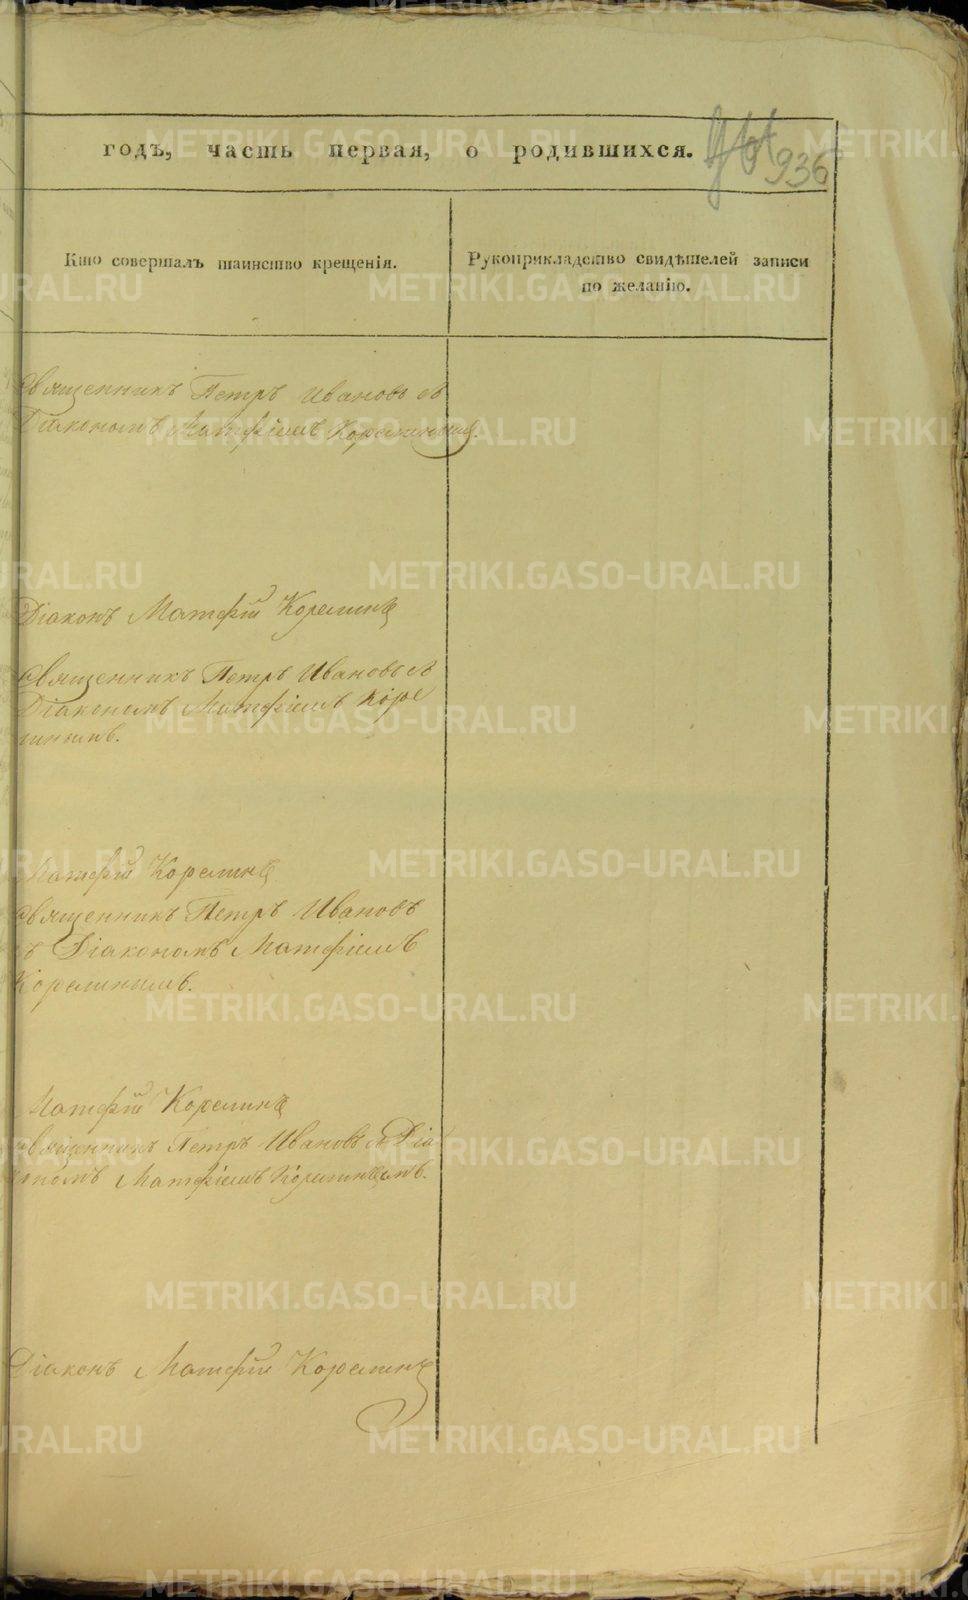 годъ, часть первая, о родившихся.
936
Кто совершалъ таинство крещенія.
Рукоприкладство свидѣтелей записи
по желанію.
Священникъ Петръ Ивановъ съ
Діакономъ Матфіемъ Корелинымъ.
Діаконъ Матфій Корелинъ
Священникъ Петръ Ивановъ съ
Діакономъ Матфіемъ Коре
линымъ.
Матфій Корелинъ
Священникъ Петръ Ивановъ
съ Діакономъ Матфіемъ
Корелинымъ.
Матфій Корелинъ
Священникъ Петръ Ивановъ съ Діа
кономъ Матфіемъ Корелинымъ.
Діаконъ Матфій Корелинъ
METRIKI.GASO-URAL.RU